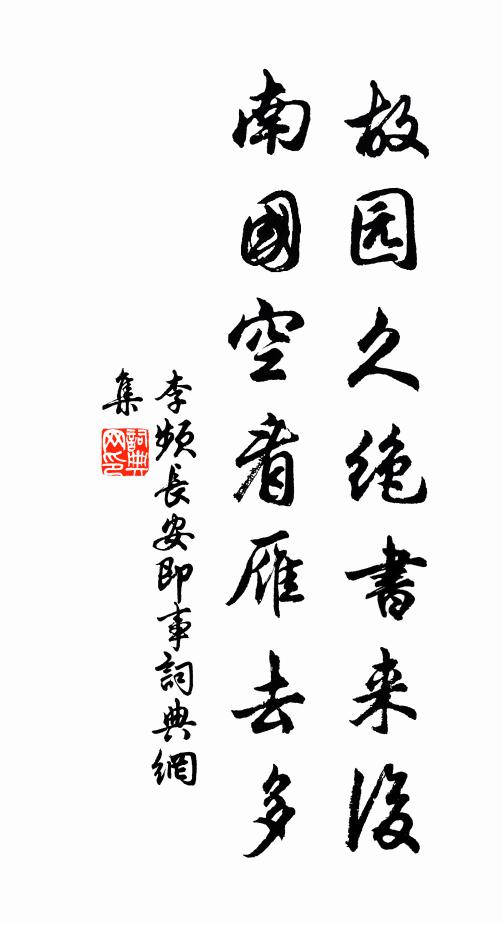 故园久绝書来後
南國空看雁去多
李频長安即事詞典網
集
詞典
网印